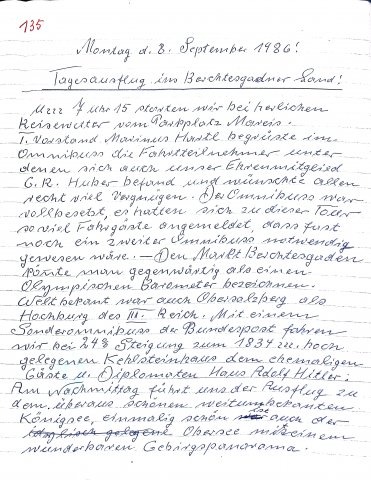 135
Montag d. 8. September 1986!
Tagesausflug ins Berchtesgadner Land!
Uzzz 7 Uhr 15 starten wir bei herlichen
Reisewetter vom Parkplatz Mareis.
I. Vorstand Marinus Hartl begrüste im
Omnikuss die Fahrtteilnehmer unter
denen sich auch unser Ehrenmitglied
G.R. Huber befand und wünschte allen
recht viel Vergnügen. Der Omnibuss war
vollbesetzt, es hatten sich zu dieser Tour
so viel Fahrgäste angemeldet, dass fast
noch ein zweiter Omnibuss notwendig
gewesen wäre. – Den Markt Berchtesgaden
könnte man gegenwärtig als einen
Olympischen Barometer bezeichnen.
Weltbekant war auch Obersalzberg als
Hochburg des III. Reich. Mit einem
Sonderomnibuss der Bundespost fahren
wir bei 24% Steigung zum 1834 m. hoch
gelegenen Kehlsteinhaus dem ehemaligen
Gäste u. Diplomaten Haus Adolf Hitler;
Am Nachmittag führt uns der Ausflug zu
dem überaus schönen weitumbekanten
Königsee, einmalig schön ist auch der
idylisch gelegene Obersee mit einem
wunderbaren Gebirgspanorama.